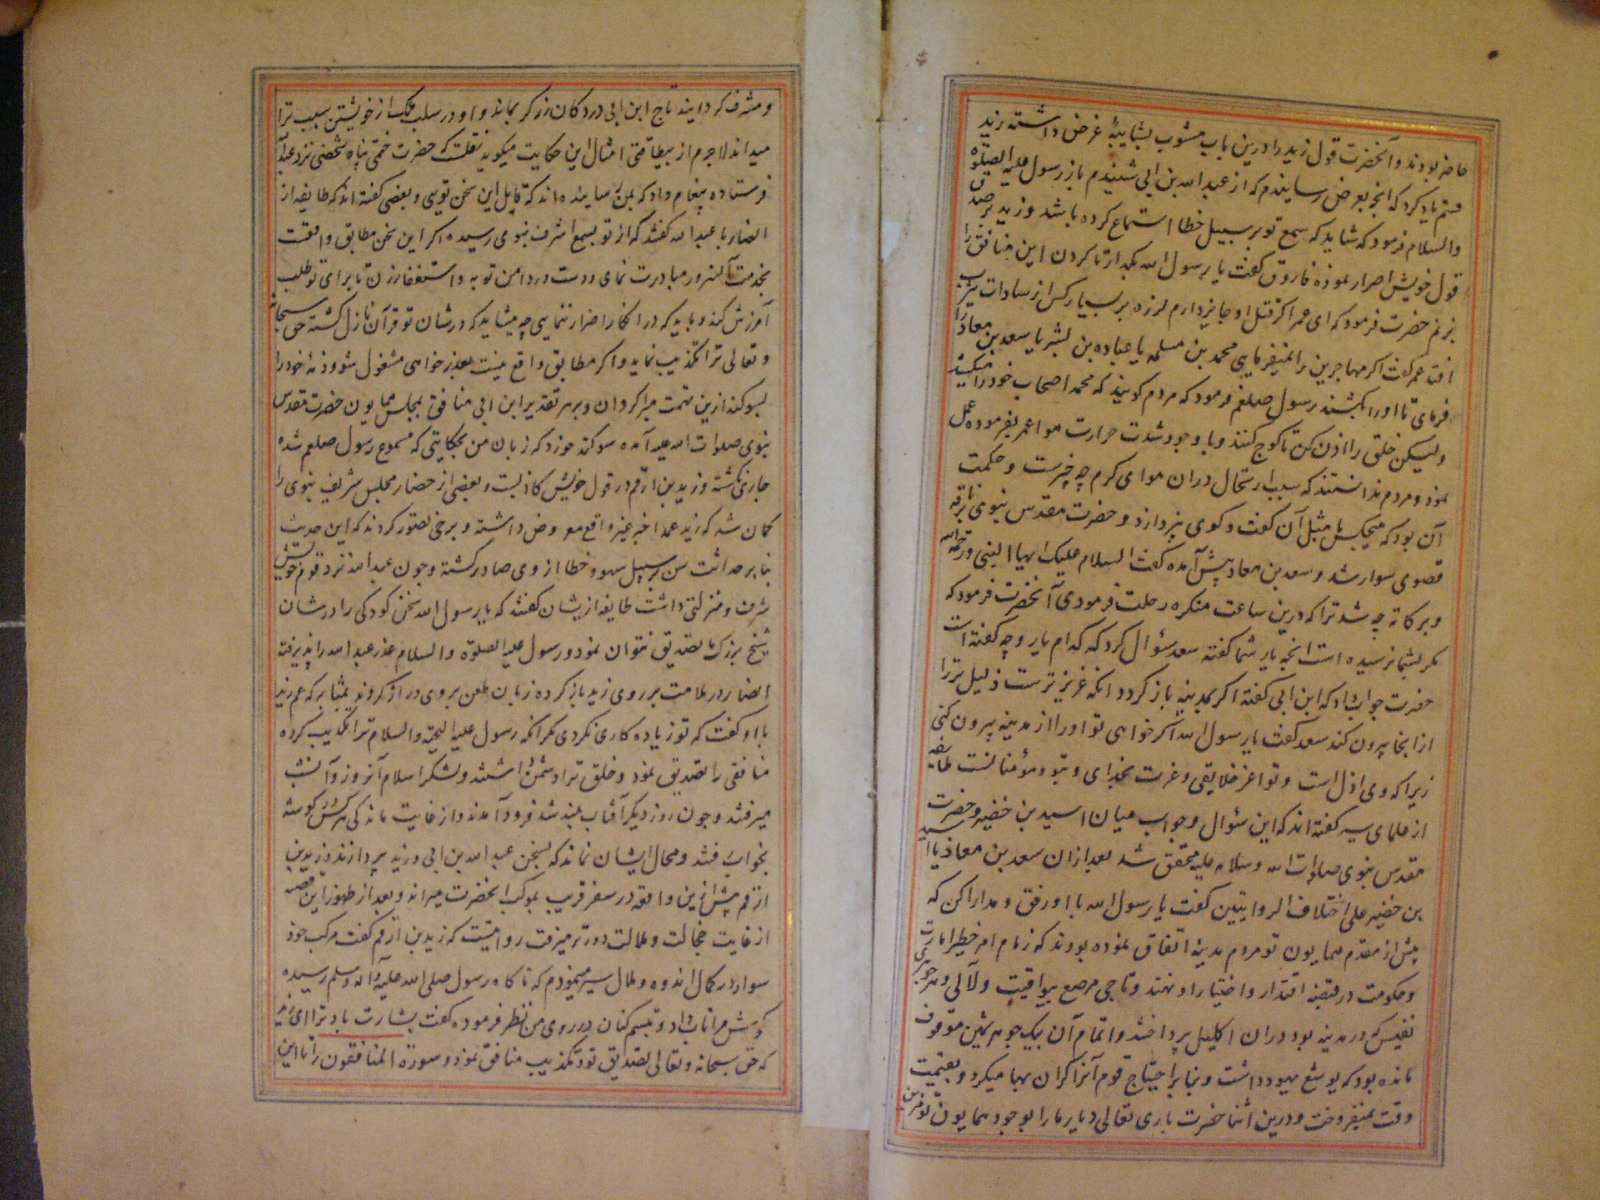 حاضر بودند و آنحضرت قول زید را درین باب مشوب بشایبهٔ غرض داشته زید
قسم یاد کرد که آنچه بعرض رسانیدم که از عبدالله بن ابی شنیدم باز رسول علیه الصلوة
والسلام فرمود که شاید که سمع تو بر سبیل خطا استماع کرده باشد و زید بر صدق
قول خویش اصرار نموده فاروق گفت یا رسول الله بگذار تا گردن این منافق را
بزنم حضرت فرمود که ای عمر اگر قتل او جایز دارم لرزه بر بسیار کس از سادات یثرب
افتد عمر گفت اگر مهاجرین را نمیفرمایی محمد بن مسلمه یا عباده بن بشر یا سعد بن معاذ را
فرمای تا او را بکشند رسول صلعم فرمود که مردم گویند که محمد اصحاب خود را میکشد
ولیکن خلق را اذن کن تا کوچ کنند و با وجود شدت حرارت هوا عمر بفرموده عمل
نمود و مردم ندانستند که سبب ارتحال دران هوای گرم چه چیزست و حکمت
آن بود که هیچکس با مثل آن گفت و گوی نپردازد و حضرت مقدس نبوی بر ناقه
قصوی سوار شد و سعد بن معاذ پیش آمده گفت السلام علیک ایها النبی ورحمة الله
وبرکاته چه شد ترا که درین ساعت منکره رحلت فرمودی آنحضرت فرمود که
مگر بشما نرسیده است آنچه یار شما گفته سعد سؤال کرد که کدام یار و چه گفته است
حضرت جواب داد که ابن ابی گفته اگر بمدینه باز گردد آنکه عزیز ترست ذلیل تر را
از انجا بیرون کند سعد گفت یا رسول الله اگر خواهی تو او را از مدینه بیرون کنی
زیرا که وی اذل است و تو اعز خلایقی و عزت بخدای و بتو و مؤمنانست طایفه
از علمای سیر گفته اند که این سؤال و جواب میان اسید بن حضیر و حضرت
مقدس نبوی صلوات الله وسلامه علیه محقق شد بعد ازان سعد بن معاذ یا اسید
بن حضیر علی اختلاف الروایتین گفت یا رسول الله با او رفق و مدارا کن که
پیش از مقدم همایون تو مردم مدینه اتفاق نموده بودند که زمام امر خطیر امارت
و حکومت در قبضه اقتدار و اختیار او نهند و تاجی مرصع بیواقیت و لآلی و هر جوهری
نفیس که در مدینه بود دران اکلیل پرداختند و اتمام آن بیک جوهر ثمین موقوف
مانده بود که یوشع یهودی داشت و بنا بر احتیاج قوم آنرا گران بها میکرد و بقیمت
وقت نمیفروخت و درین اثنا حضرت باری تعالی دیار ما را بوجود همایون تو مزین
و مشرف گردانید تاج ابن ابی در دکان زرگر بماند و او در سلب ملک از خویشتن سبب ترا
میداند لاجرم از بیطاقتی امثال این حکایت میگوید نقلست که حضرت ختمی پناه شخصی نزد عبدالله
فرستاده پیغام داد که بمن رسانیده اند که قایل این سخن تویی و بعضی گفته اند که طایفه از
انصار با عبدالله گفتند که از تو بسمع اشرف نبوی رسیده اگر این سخن مطابق واقعست
بخدمت آنسرور مبادرت نمای و دست در دامن توبه و استغفار زن تا برای تو طلب
آمرزش کند و باید که در انکار اصرار ننمایی چه میشاید که در شان تو قرآن نازل گشته حق سبحانه
و تعالی ترا تکذیب نماید و اگر مطابق واقع نیست بعذر خواهی مشغول شو و ذمهٔ خود را
بسوگند ازین تهمت مبرا گردان و بر هر تقدیر ابن ابی منافق بمجلس همایون حضرت مقدس
نبوی صلوات الله علیه آمده سوگند خورد که زبان من بحکایتی که مسموع رسول صلعم شده
جاری نگشته و زید بن ارقم در قول خویش کاذبست و بعضی از حضار مجلس شریف نبوی را
گمان شد که زید عمدا خبر غیر واقع معروض داشته و برخی تصور کردند که این حدیث
بنا بر حداثت سن بر سبیل سهو و خطا از وی صادر گشته و چون عبدالله نزد قوم خویش
شرف و منزلتی داشت طایفه ازیشان گفتند که یا رسول الله سخن کودکی را در شان
شیخ بزرگ ما تصدیق نتوان نمود و رسول علیه الصلوة والسلام عذر عبدالله را پذیرفته
انصار در ملامت بر روی زید باز کرده زبان طعن بر وی دراز کردند بمثابه که عم زید
با او گفت که تو زیاده کاری نکردی مگر آنکه رسول علیه التحیه والسلام ترا تکذیب کرده
منافقی را تصدیق نمود و خلق ترا دشمن داشتند و لشکر اسلام آنروز و آنشب
میرفتند و چون روز دیگر آفتاب بلند شد فرود آمدند و از غایت ماندگی هرکس بگوشه
بخواب رفتند و مجال ایشان نماند که بسخن عبدالله بن ابی و زید پردازند و زید بن
ارقم پیش ازین واقعه در سفر قریب بموکب آنحضرت میراند و بعد از ظهور این قصه
از غایت خجالت و ملالت دورتر میرفت روایتست که زید بن ارقم گفت مرکب خود
سوار در کمال اندوه و ملال سیر مینمودم که ناگاه رسول صلی الله علیه وآله وسلم رسیده
گوش مرا تاب داد و تبسم کنان در روی من نظر فرموده گفت بشارت باد ترا ای زید
که حق سبحانه و تعالی تصدیق تو و تکذیب منافق نمود و سورة المنافقون را تا این